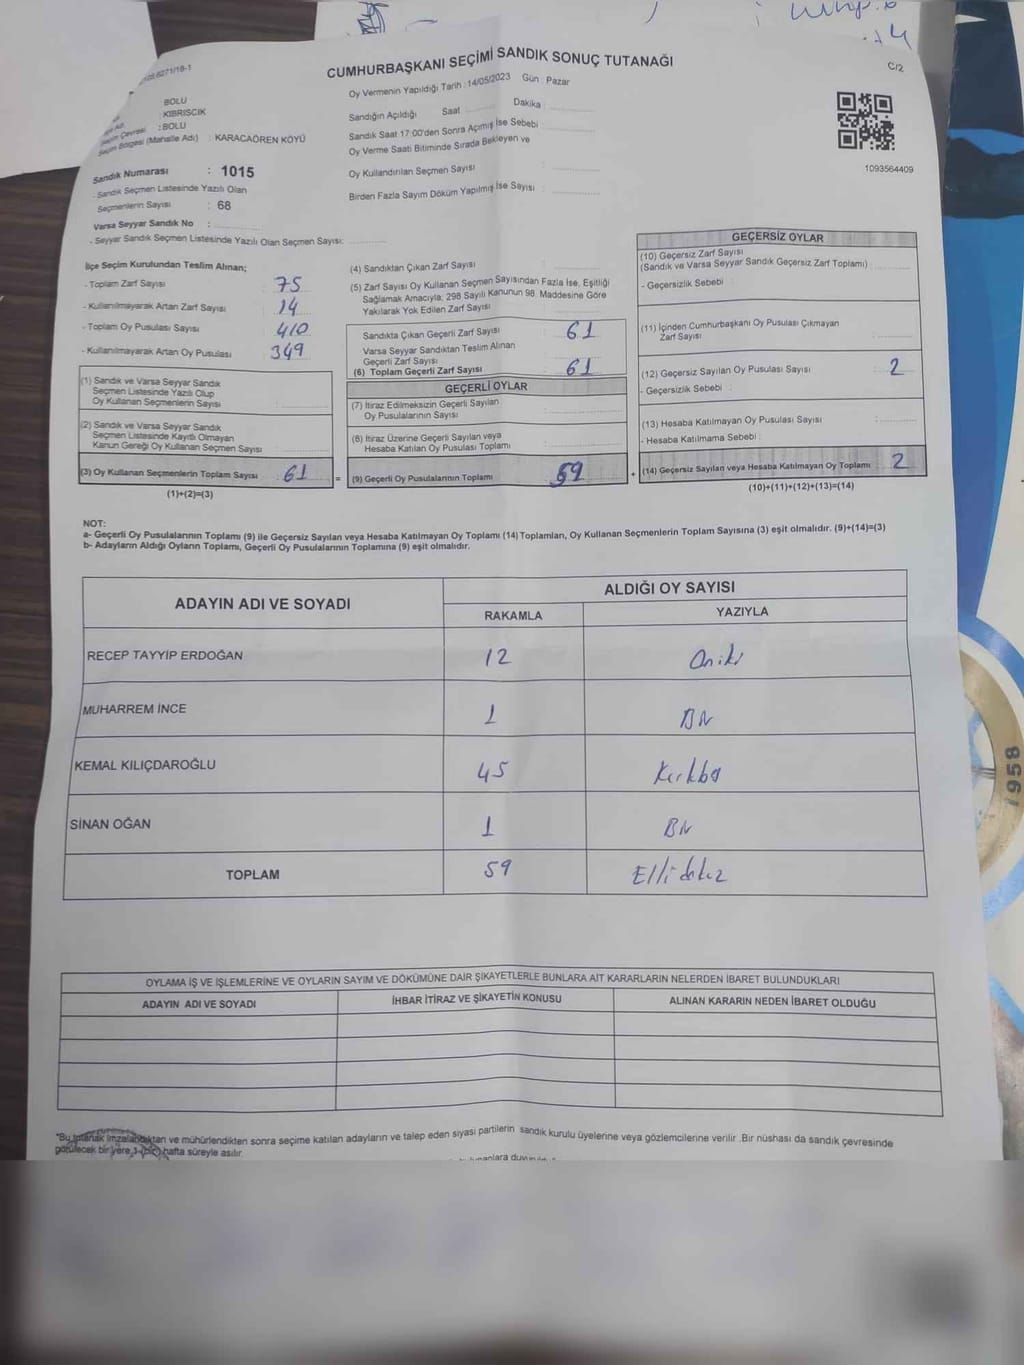 CUMHURBAŞKANI SEÇİMİ SANDIK SONUÇ TUTANAĞI
C/2
Oy Vermenin Yapıldığı Tarih : 14/05/2023 Gün : Pazar
BOLU
: KIBRISCIK
Seçim Çevresi : BOLU
Seçim Bölgesi (Mahalle Adı) : KARACAÖREN KÖYÜ
Sandığın Açıldığı Saat Dakika :
Sandık Saat 17:00'den Sonra Açımış İse Sebebi :
Oy Verme Saati Bitiminde Sırada Bekleyen ve
Oy Kullandırılan Seçmen Sayısı
Birden Fazla Sayım Döküm Yapılmış İse Sayısı :
1093564409
Sandık Numarası : 1015
- Sandık Seçmen Listesinde Yazılı Olan
Seçmenlerin Sayısı : 68
Varsa Seyyar Sandık No :
- Seyyar Sandık Seçmen Listesinde Yazılı Olan Seçmen Sayısı:
İlçe Seçim Kurulundan Teslim Alınan;
- Toplam Zarf Sayısı : 75
- Kullanılmayarak Artan Zarf Sayısı : 14
- Toplam Oy Pusulası Sayısı : 410
- Kullanılmayarak Artan Oy Pusulası : 349
(1) Sandık ve Varsa Seyyar Sandık
Seçmen Listesinde Yazılı Olup
Oy Kullanan Seçmenlerin Sayısı :
(2) Sandık ve Varsa Seyyar Sandık
Seçmen Listesinde Kayıtlı Olmayan
Kanun Gereği Oy Kullanan Seçmen Sayısı :
(3) Oy Kullanan Seçmenlerin Toplam Sayısı : 61 =
(1)+(2)=(3)
(4) Sandıktan Çıkan Zarf Sayısı :
(5) Zarf Sayısı Oy Kullanan Seçmen Sayısından Fazla İse, Eşitliği
Sağlamak Amacıyla; 298 Sayılı Kanunun 98. Maddesine Göre
Yakılarak Yok Edilen Zarf Sayısı
Sandıkta Çıkan Geçerli Zarf Sayısı : 61
Varsa Seyyar Sandıktan Teslim Alınan
Geçerli Zarf Sayısı
(6) Toplam Geçerli Zarf Sayısı : 61
GEÇERLİ OYLAR
(7) İtiraz Edilmeksizin Geçerli Sayılan
Oy Pusulalarının Sayısı :
(8) İtiraz Üzerine Geçerli Sayılan veya
Hesaba Katılan Oy Pusulası Toplamı :
(9) Geçerli Oy Pusulalarının Toplamı : 59 +
GEÇERSİZ OYLAR
(10) Geçersiz Zarf Sayısı
(Sandık ve Varsa Seyyar Sandık Geçersiz Zarf Toplamı)
- Geçersizlik Sebebi :
(11) İçinden Cumhurbaşkanı Oy Pusulası Çıkmayan
Zarf Sayısı :
(12) Geçersiz Sayılan Oy Pusulası Sayısı : 2
- Geçersizlik Sebebi :
(13) Hesaba Katılmayan Oy Pusulası Sayısı :
- Hesaba Katılmama Sebebi :
(14) Geçersiz Sayılan veya Hesaba Katılmayan Oy Toplamı : 2
(10)+(11)+(12)+(13)=(14)
NOT:
a- Geçerli Oy Pusulalarının Toplamı (9) ile Geçersiz Sayılan veya Hesaba Katılmayan Oy Toplamı (14) Toplamları, Oy Kullanan Seçmenlerin Toplam Sayısına (3) eşit olmalıdır. (9)+(14)=(3)
b- Adayların Aldığı Oyların Toplamı, Geçerli Oy Pusulalarının Toplamına (9) eşit olmalıdır.
ADAYIN ADI VE SOYADI
ALDIĞI OY SAYISI
RAKAMLA YAZIYLA
RECEP TAYYİP ERDOĞAN 12 Oniki
MUHARREM İNCE 1
KEMAL KILIÇDAROĞLU 45
SİNAN OĞAN 1
TOPLAM 59
OYLAMA İŞ VE İŞLEMLERİNE VE OYLARIN SAYIM VE DÖKÜMÜNE DAİR ŞİKAYETLERLE BUNLARA AİT KARARLARIN NELERDEN İBARET BULUNDUKLARI
ADAYIN ADI VE SOYADI İHBAR İTİRAZ VE ŞİKAYETİN KONUSU ALINAN KARARIN NEDEN İBARET OLDUĞU
*Bu tutanak imzalandıktan ve mühürlendikten sonra seçime katılan adayların ve talep eden siyasi partilerin sandık kurulu üyelerine veya gözlemcilerine verilir. Bir nüshası da sandık çevresinde
görülecek bir yere 1 (bir) hafta süreyle asılır.
1958